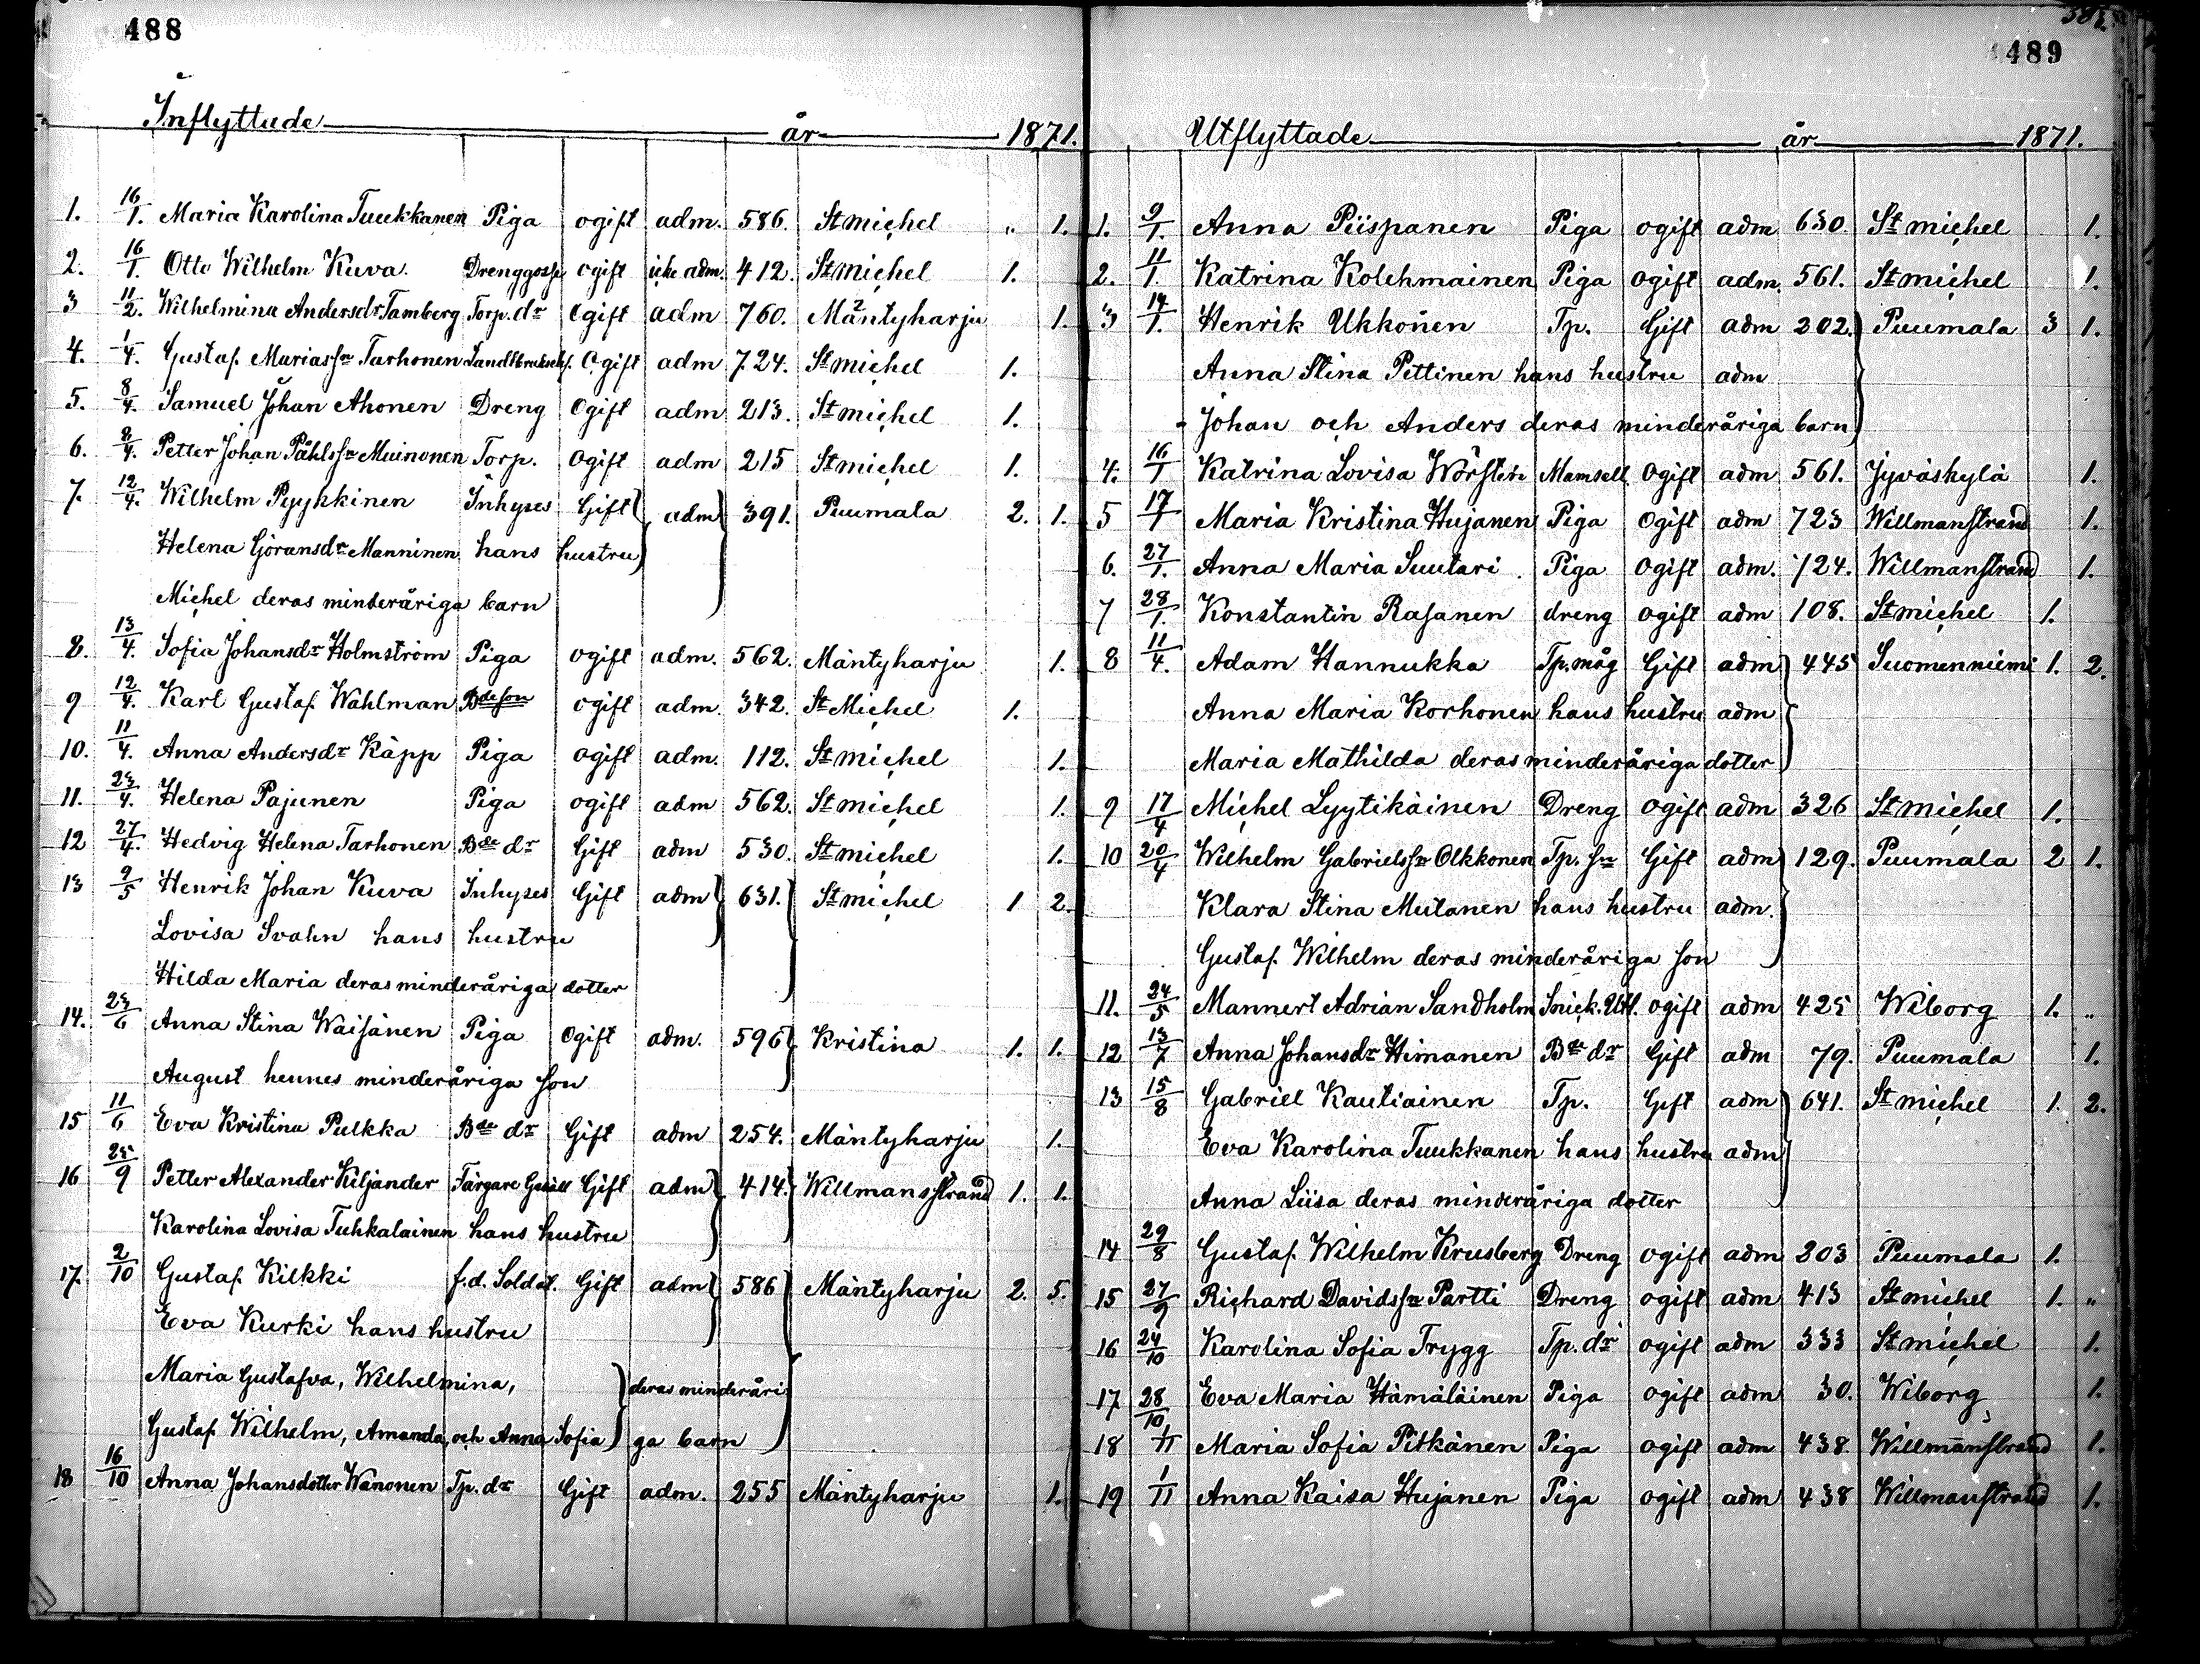 488
Inflyttade år 1871.
1. 16/1. Maria Karolina Tuukkanen Piga ogift adm. 586. St michel " 1.
2. 16/1 Otto Wilhelm Kuva. Drenggosse ogift icke adm. 412. St michel 1.
3 11/2. Wilhelmina Andersdr Tamberg Torp. dr Ogift adm 760. Mäntyharju 1.
4. 1/4. Gustaf Mariassn Tarhonen Ogift adm 724. St michel 1.
5. 8/4. Samuel Johan Ahonen Dreng Ogift adm 213. St michel 1.
6. 8/4. Petter Johan Påhlssn Muinonen Torp. Ogift adm 215 St michel 1.
7. 12/4. Wilhelm Pyykkinen Inhyses Gift adm 391. Puumala 2. 1.
Helena Göransdr Manninen hans hustru
Michel deras minderåriga barn
8. 13/4. Sofia Johansdr Holmström Piga ogift adm. 562. Mäntyharju 1.
9 12/4. Karl Gustaf Wahlman Bdeson ogift adm. 342. St Michel 1.
10. 11/4. Anna Andersdr Käpp Piga ogift adm. 112. St michel 1.
11. 23/4. Helena Pajunen Piga ogift adm 562. St michel 1.
12 27/4. Hedvig Helena Tarhonen Bde dr Gift adm 530. St michel 1.
13 9/5 Henrik Johan Kuva Inhyses Gift adm 631. St michel 1 2.
Lovisa Svahn hans hustru
Hilda Maria deras minderåriga dotter
14. 23/6 Anna Stina Waisänen Piga Ogift adm. 596 Kristina 1. 1.
August hennes minderåriga son
15 11/6 Eva Kristina Pulkka Bde dr Gift adm 254. Mäntyharju 1.
16 25/9 Petter Alexander Kiljander Färgare Gesäll Gift adm 414. Willmansstrand 1. 1.
Karolina Lovisa Tuhkalainen hans hustru
17. 2/10 Gustaf Kilkki f.d. Soldat. Gift adm 586 Mäntyharju 2. 5.
Eva Kurki hans hustru
Maria Gustafva, Wilhelmina, deras minderåri
Gustaf Wilhelm, Amanda, och Anna Sofia ga barn
18 16/10 Anna Johansdotter Wänonen Tp. dr Gift adm. 255 Mäntyharju 1.
489
Utflyttade år 1871.
1. 9/1. Anna Piispanen Piga ogift adm 630. St michel 1.
2. 11/1. Katrina Kolehmainen Piga ogift adm. 561. St michel 1.
3 14/1. Henrik Ukkonen Tp. Gift adm 202. Puumala 3 1.
Anna Stina Pittinen hans hustru adm
Johan och Anders deras minderåriga barn
4. 16/1 Katrina Lovisa Mamsell Ogift adm 561. Jyväskylä 1.
5 17/1 Maria Kristina Hujanen Piga Ogift adm 723 Willmanstrand 1.
6. 27/1. Anna Maria Suutari. Piga Ogift adm. 724. Willmanstrand 1.
7 28/1. Konstantin Rasanen dreng ogift adm 108. St michel 1.
8 11/4. Adam Hannukka Tp. måg Gift adm 445 Suomenniemi 1. 2.
Anna Maria Korhonen hans hustru adm
Maria Mathilda deras minderåriga dotter
9 17/4 Michel Lyytikäinen Dreng ogift adm 326 St michel 1.
10 20/4 Wilhelm Gabrielssn Olkkonen Tp. sn Gift adm 129. Puumala 2 1.
Klara Stina Mutanen hans hustru adm.
Gustaf Wilhelm deras minderåriga son
11. 24/5 Mannert Adrian Sandholm ogift adm 425 Wiborg 1. "
12 13/7 Anna Johansdr Himanen Bde dr Gift adm 79. Puumala 1.
13 15/8 Gabriel Kautiainen Tp. Gift adm 641. St michel 1. 2.
Eva Karolina Tuukkanen hans hustru adm
Anna Liisa deras minderåriga dotter
14 29/8 Gustaf Wilhelm Krusberg Dreng ogift adm 203 Puumala 1.
15 27/9 Richard Davidssn Partti Dreng ogift adm 413 St michel 1. "
16 24/10 Karolina Sofia Trygg Tp. dr ogift adm 333 St michel 1.
17 28/10 Eva Maria Hämäläinen Piga ogift adm 30. Wiborg 1.
18 1/11 Maria Sofia Pitkänen Piga ogift adm 438. Willmanstrand 1.
19 1/11 Anna Kaisa Hujanen Piga ogift adm 438 Willmanstrand 1.